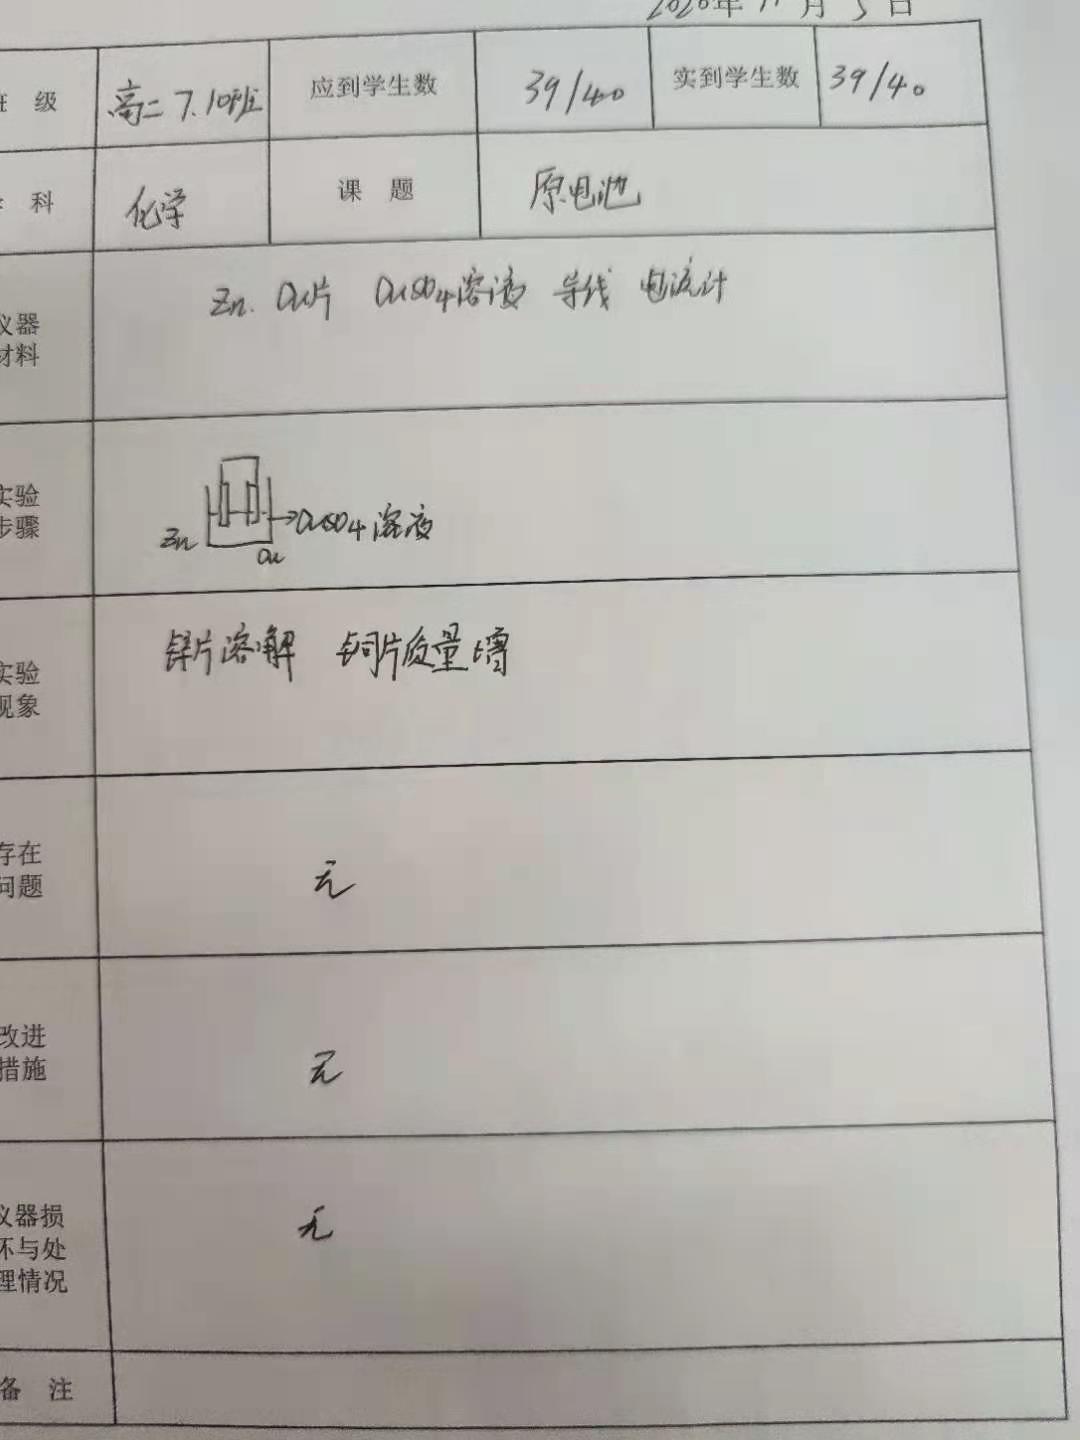 2020年11月5日
级 高二7.10班 应到学生数 39/40 实到学生数 39/40
科 化学 课题 原电池
Zn. Cu片 CuSO4溶液 导线 电流计
仪器
材料
实验
步骤
Zn Cu CuSO4溶液
锌片溶解 铜片质量增
实验
现象
存在
问题
无
改进
措施
无
仪器损
坏与处
理情况
无
备注